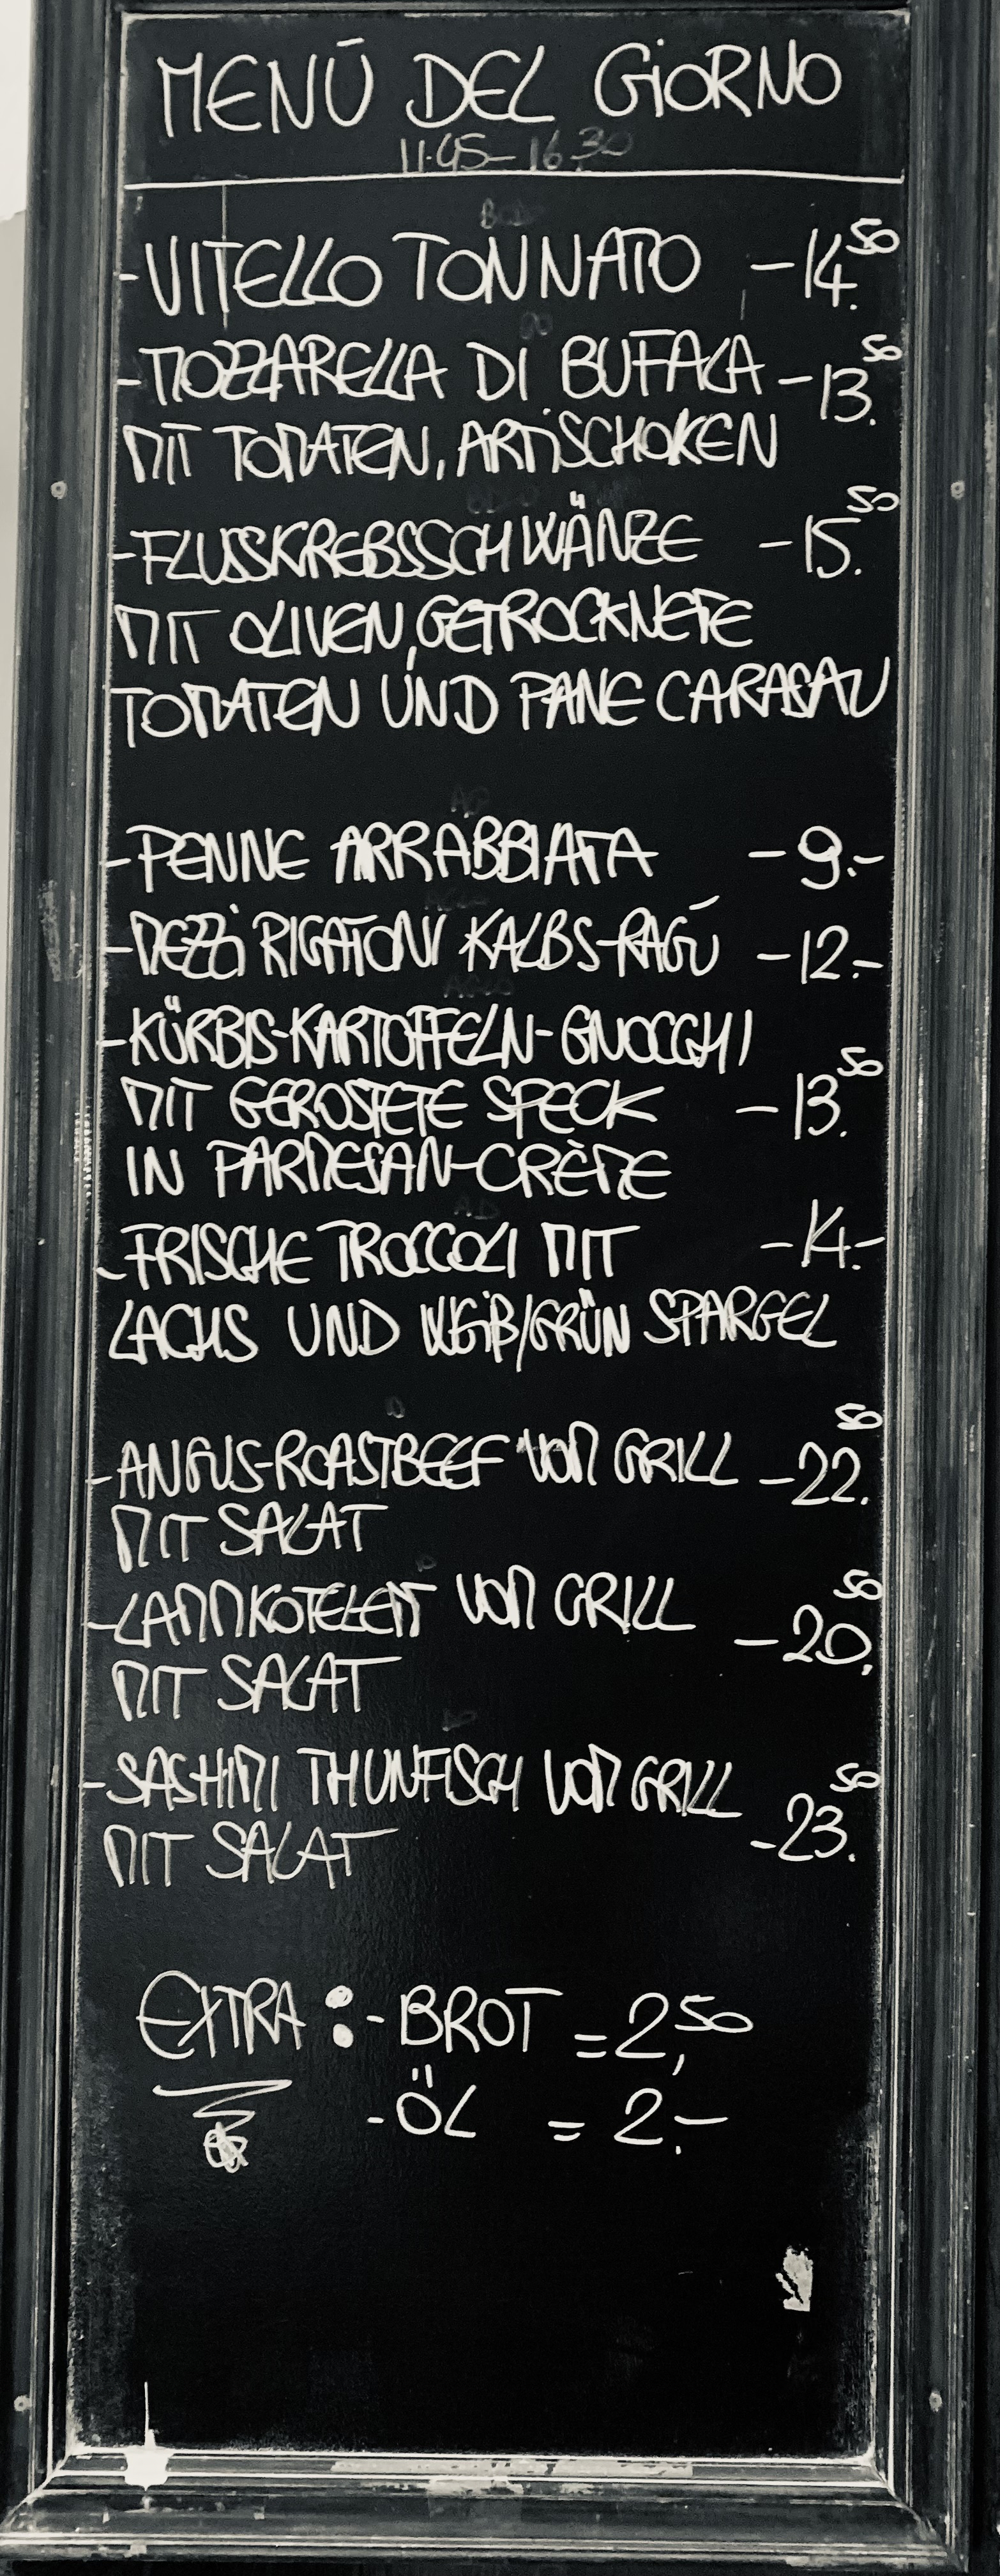 MENÚ DEL GiORNO
11.45-16.30
-VITELLO TONNATO -14.50
-MOZZARELLA DI BUFALA -13.50
MIT TOMATEN, ARTiSCHOKEN
-FLUSSKREBSSCHWÄNZE -15.50
MIT OLIVEN, GETROCKNETE
TOMATEN UND PANE CARASAU
-PENNE ARRABBIATA -9.-
-MEZZi RIGATONI KALBS-RAGÚ -12.-
-KÜRBIS-KARTOFFELN-GNOCCHI
MIT GEROSTETE SPECK -13.50
IN PARMESAN-CRÈME
-FRISCHE TROCCOLI MIT -14.-
LACHS UND WEiß/GRÜN SPARGEL
-ANGUS-ROASTBEEF VOM GRILL -22.50
MIT SALAT
-LAMMKOTELETT VOM GRILL -20.50
MIT SALAT
-SASHIMI THUNFISCH VOM GRILL -23.50
MIT SALAT
EXTRA: -BROT =2,50
-ÖL = 2.-